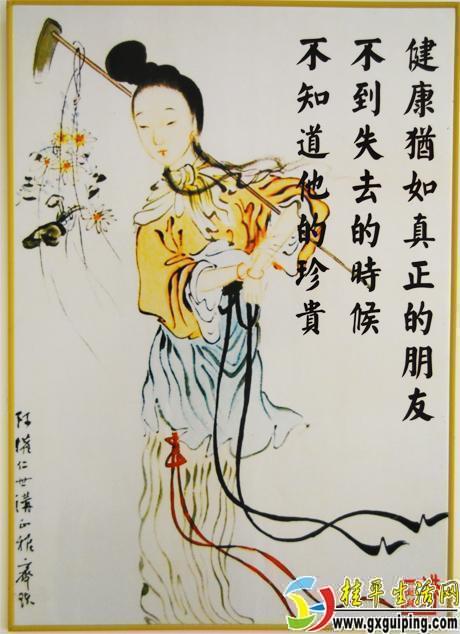 健康猶如真正的朋友
不到失去的時候
不知道他的珍貴
桂平生活网
www.gxguiping.com